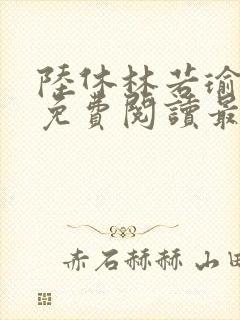 陸休林若瑜
免費閱讀最
赤石赫赫 山田